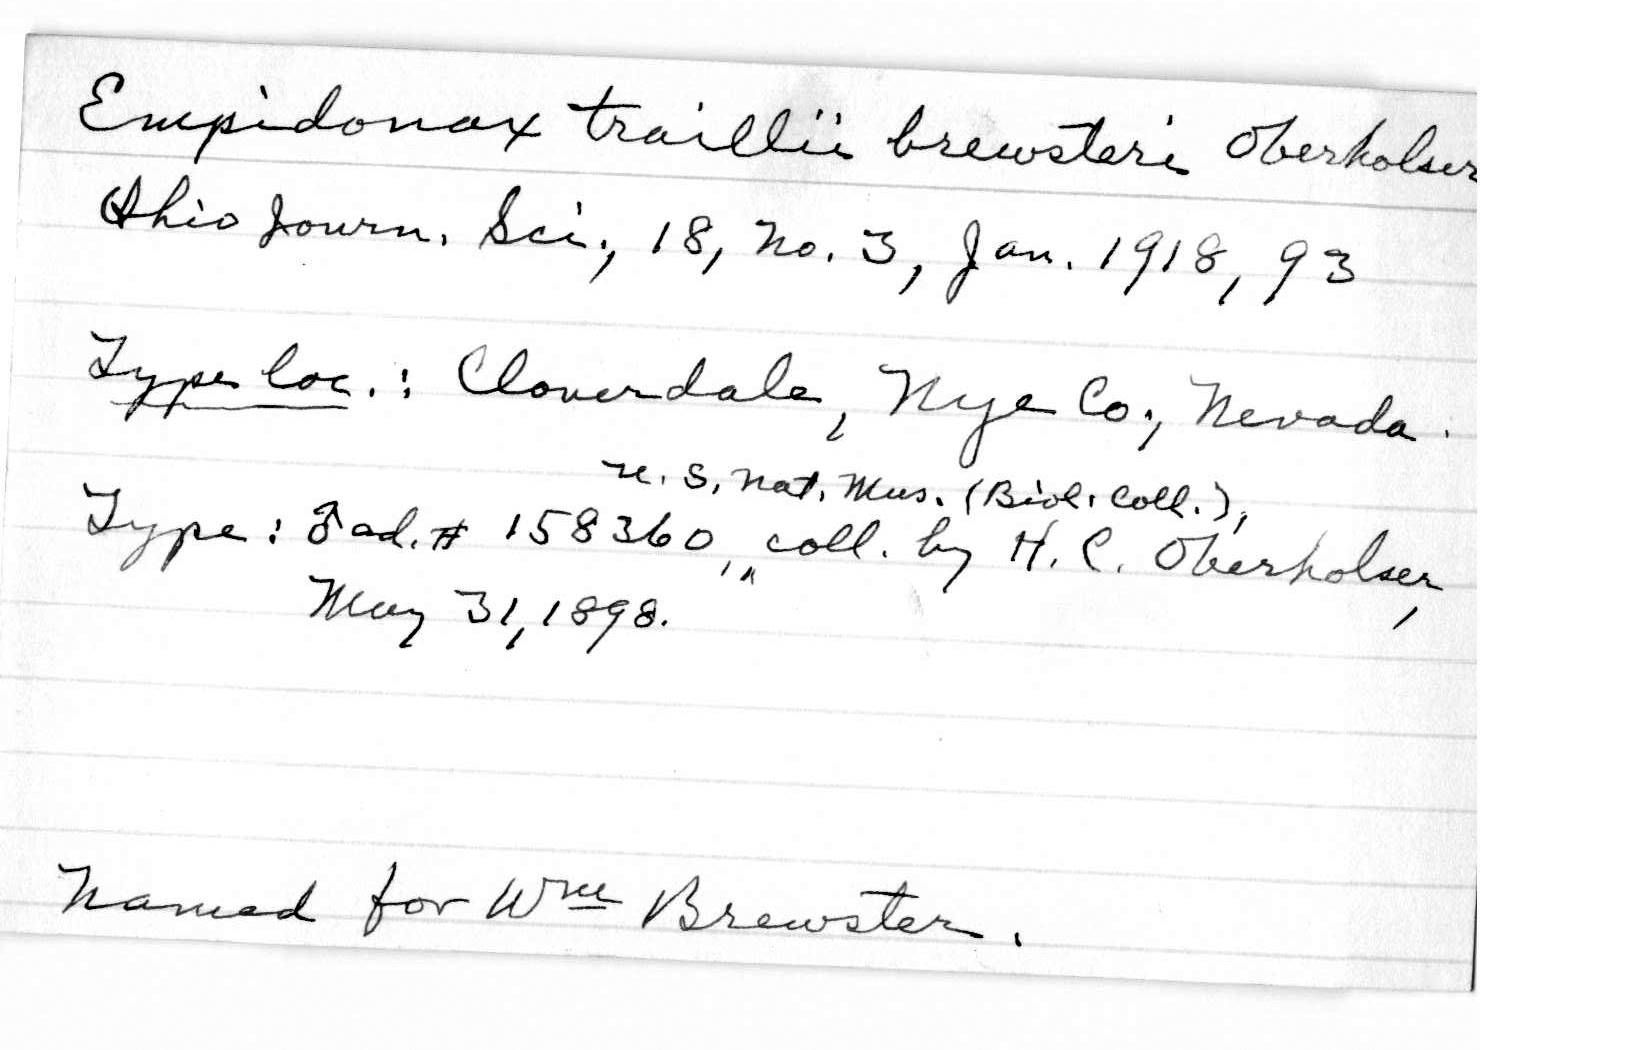 Empidonax traillii brewsteri Oberholser
Ohio Journ. Sci., 18, no. 3, Jan. 1918, 93
Type loc.: Cloverdale, Nye Co., Nevada.
U.S. Nat. Mus. (Biol. Coll.),
Type: ♂ ad. # 158360, coll. by H. C. Oberholser,
May 31, 1898.
Named for Wm Brewster.